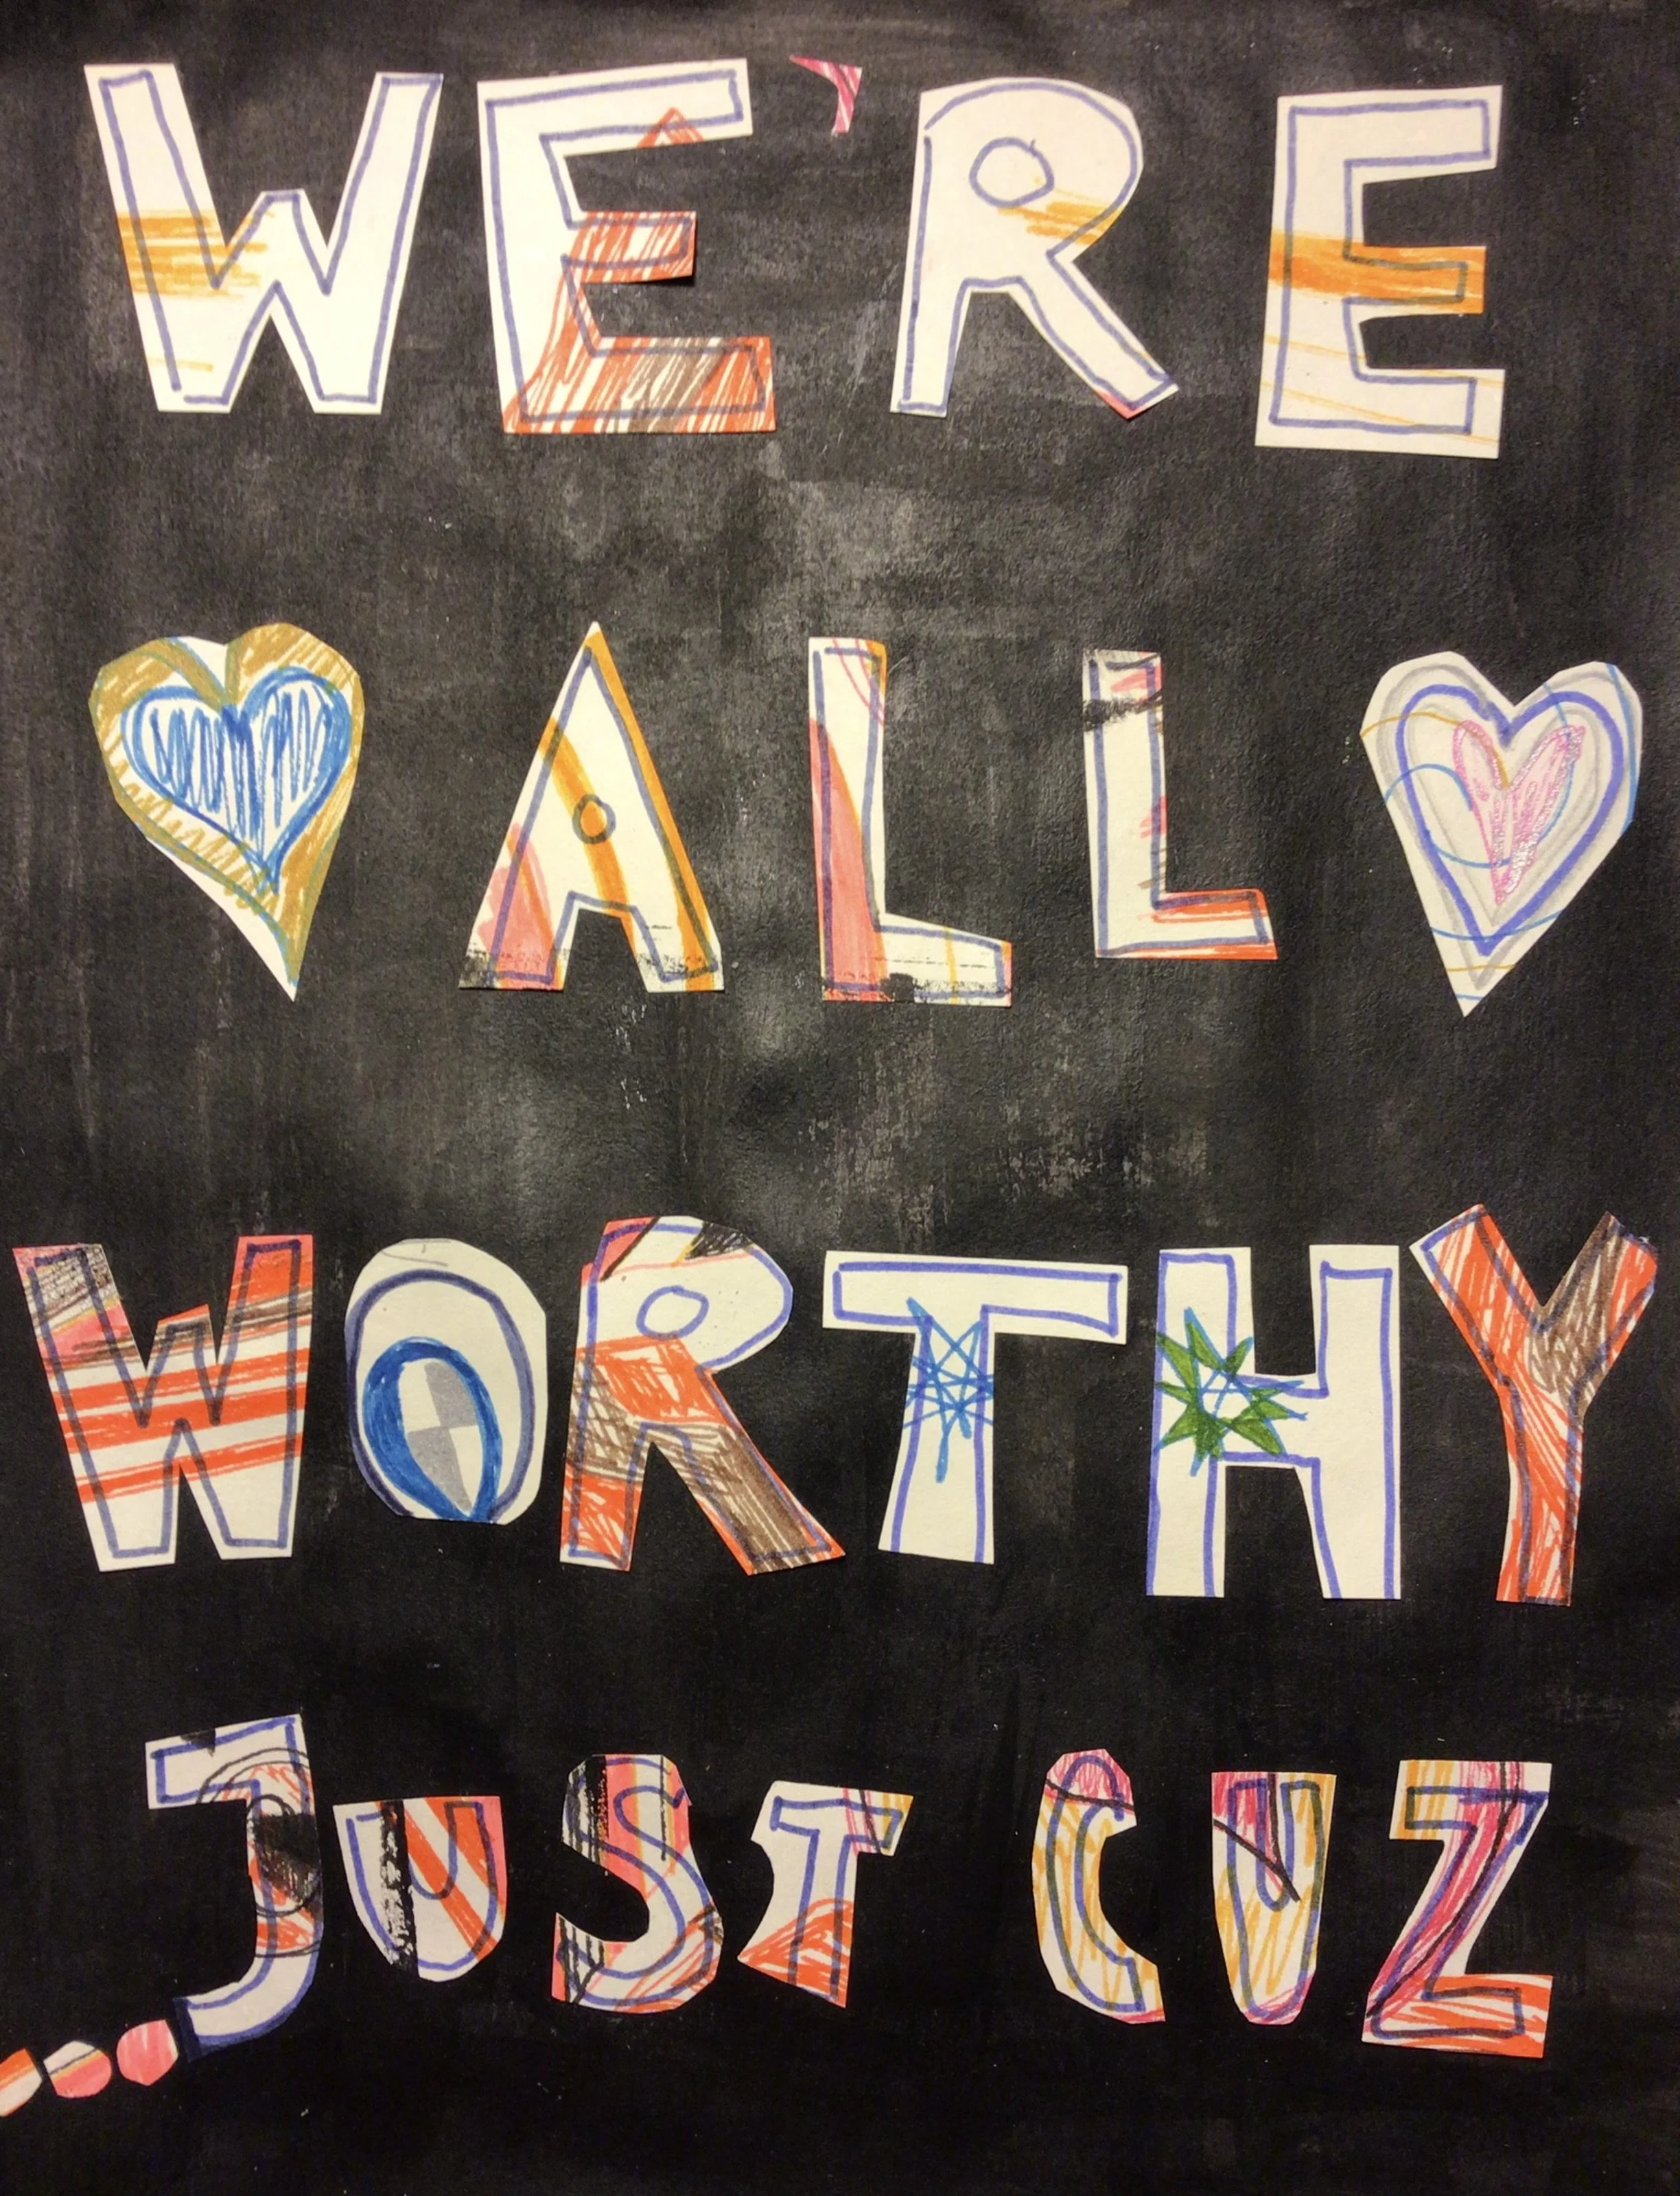 WE'RE
ALL
WORTHY
...JUST CUZ